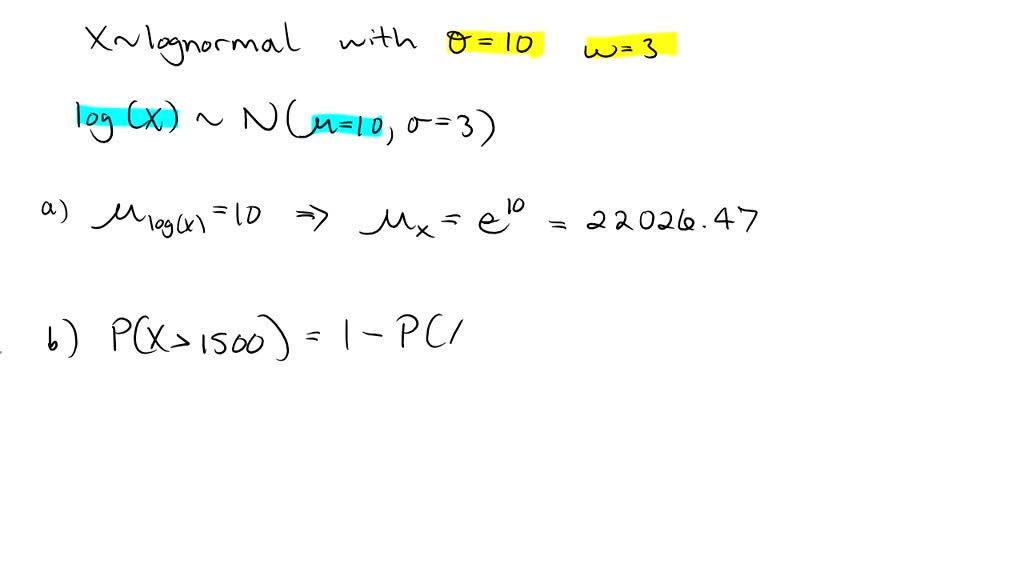 X~lognormal with θ=10 ω=3
log(X) ~ N(μ=10, σ=3)
a) μlog(x)=10 ⇒ μx = e^10 = 22026.47
b) P(X>1500) = 1-P(